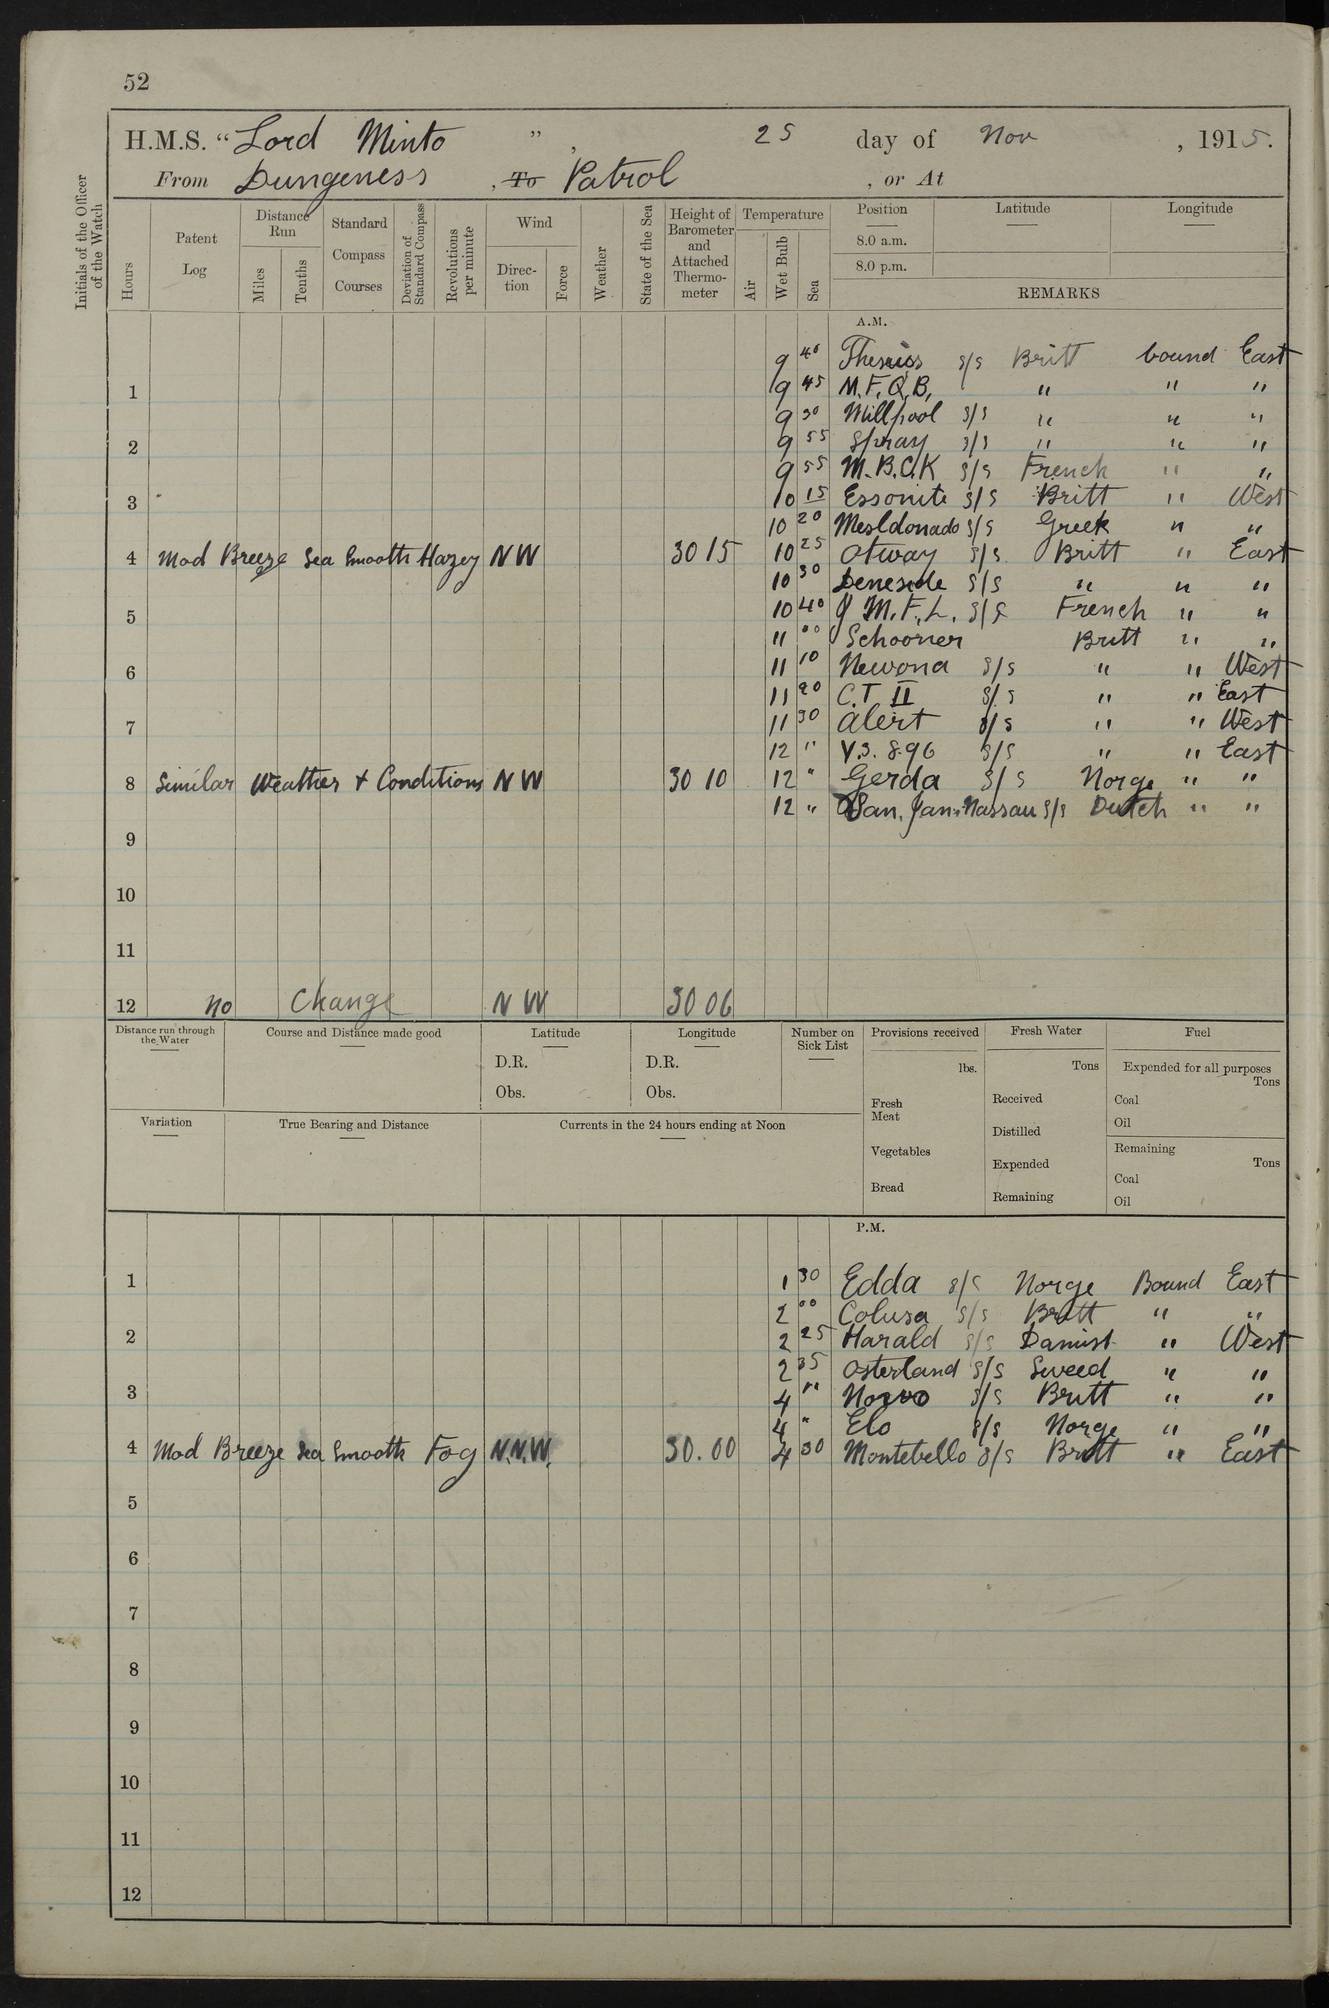 52
H.M.S. "Lord Minto", 25 day of Nov, 1915.
From Dungeness, To Patrol, or At
Initials of the Officer of the Watch
Hours
Patent Log
Distance Run
Miles
Tenths
Standard Compass Courses
Deviation of Standard Compass
Revolutions per minute
Wind
Direction
Force
Weather
State of the Sea
Height of Barometer and Attached Thermometer
Temperature
Air
Wet Bulb
Sea
Position
8.0 a.m.
8.0 p.m.
Latitude
Longitude
REMARKS
A.M.
9 40 s/s Britt bound East
1
9 45 M.F.Q.B. " " "
9 50 Millpool s/s " " "
2
9 55 Spray s/s " " "
9 55 M.B.C.K s/s French " "
3
10 15 Essonite s/s Britt " West
10 20 Mesldonado s/s Greek " "
4 Mod Breeze Sea Smooth Hazey NW 30 15 10 25 Otway s/s Britt " East
10 30 Deneside s/s " " "
5
10 40 J M.F.L. s/s French " "
11 00 Schooner Britt " "
6
11 10 Newona s/s " " West
11 20 C.T II s/s " " East
7
11 30 Alert s/s " " West
12 " V.S. 896 s/s " " East
8 Similar Weather & Conditions NW 30 10 12 " Gerda s/s Norge " "
12 " San. Jan. Nassau s/s Dutch " "
9
10
11
12 No Change NW 30 06
Distance run through the Water
Course and Distance made good
Latitude
D.R.
Obs.
Longitude
D.R.
Obs.
Number on Sick List
Provisions received
lbs.
Fresh Meat
Vegetables
Bread
Fresh Water
Tons
Received
Distilled
Expended
Remaining
Fuel
Expended for all purposes
Tons
Coal
Oil
Remaining
Tons
Coal
Oil
Variation
True Bearing and Distance
Currents in the 24 hours ending at Noon
P.M.
1 1 30 Edda s/s Norge Bound East
2 00 Colusa s/s Britt " "
2 2 25 Harald s/s Danish " West
2 35 Osterland s/s Sweed " "
3 4 " Norvo s/s Britt " "
4 " Elo s/s Norge " "
4 Mod Breeze Sea Smooth Fog N.N.W. 30.00 4 30 Montebello s/s Britt " East
5
6
7
8
9
10
11
12